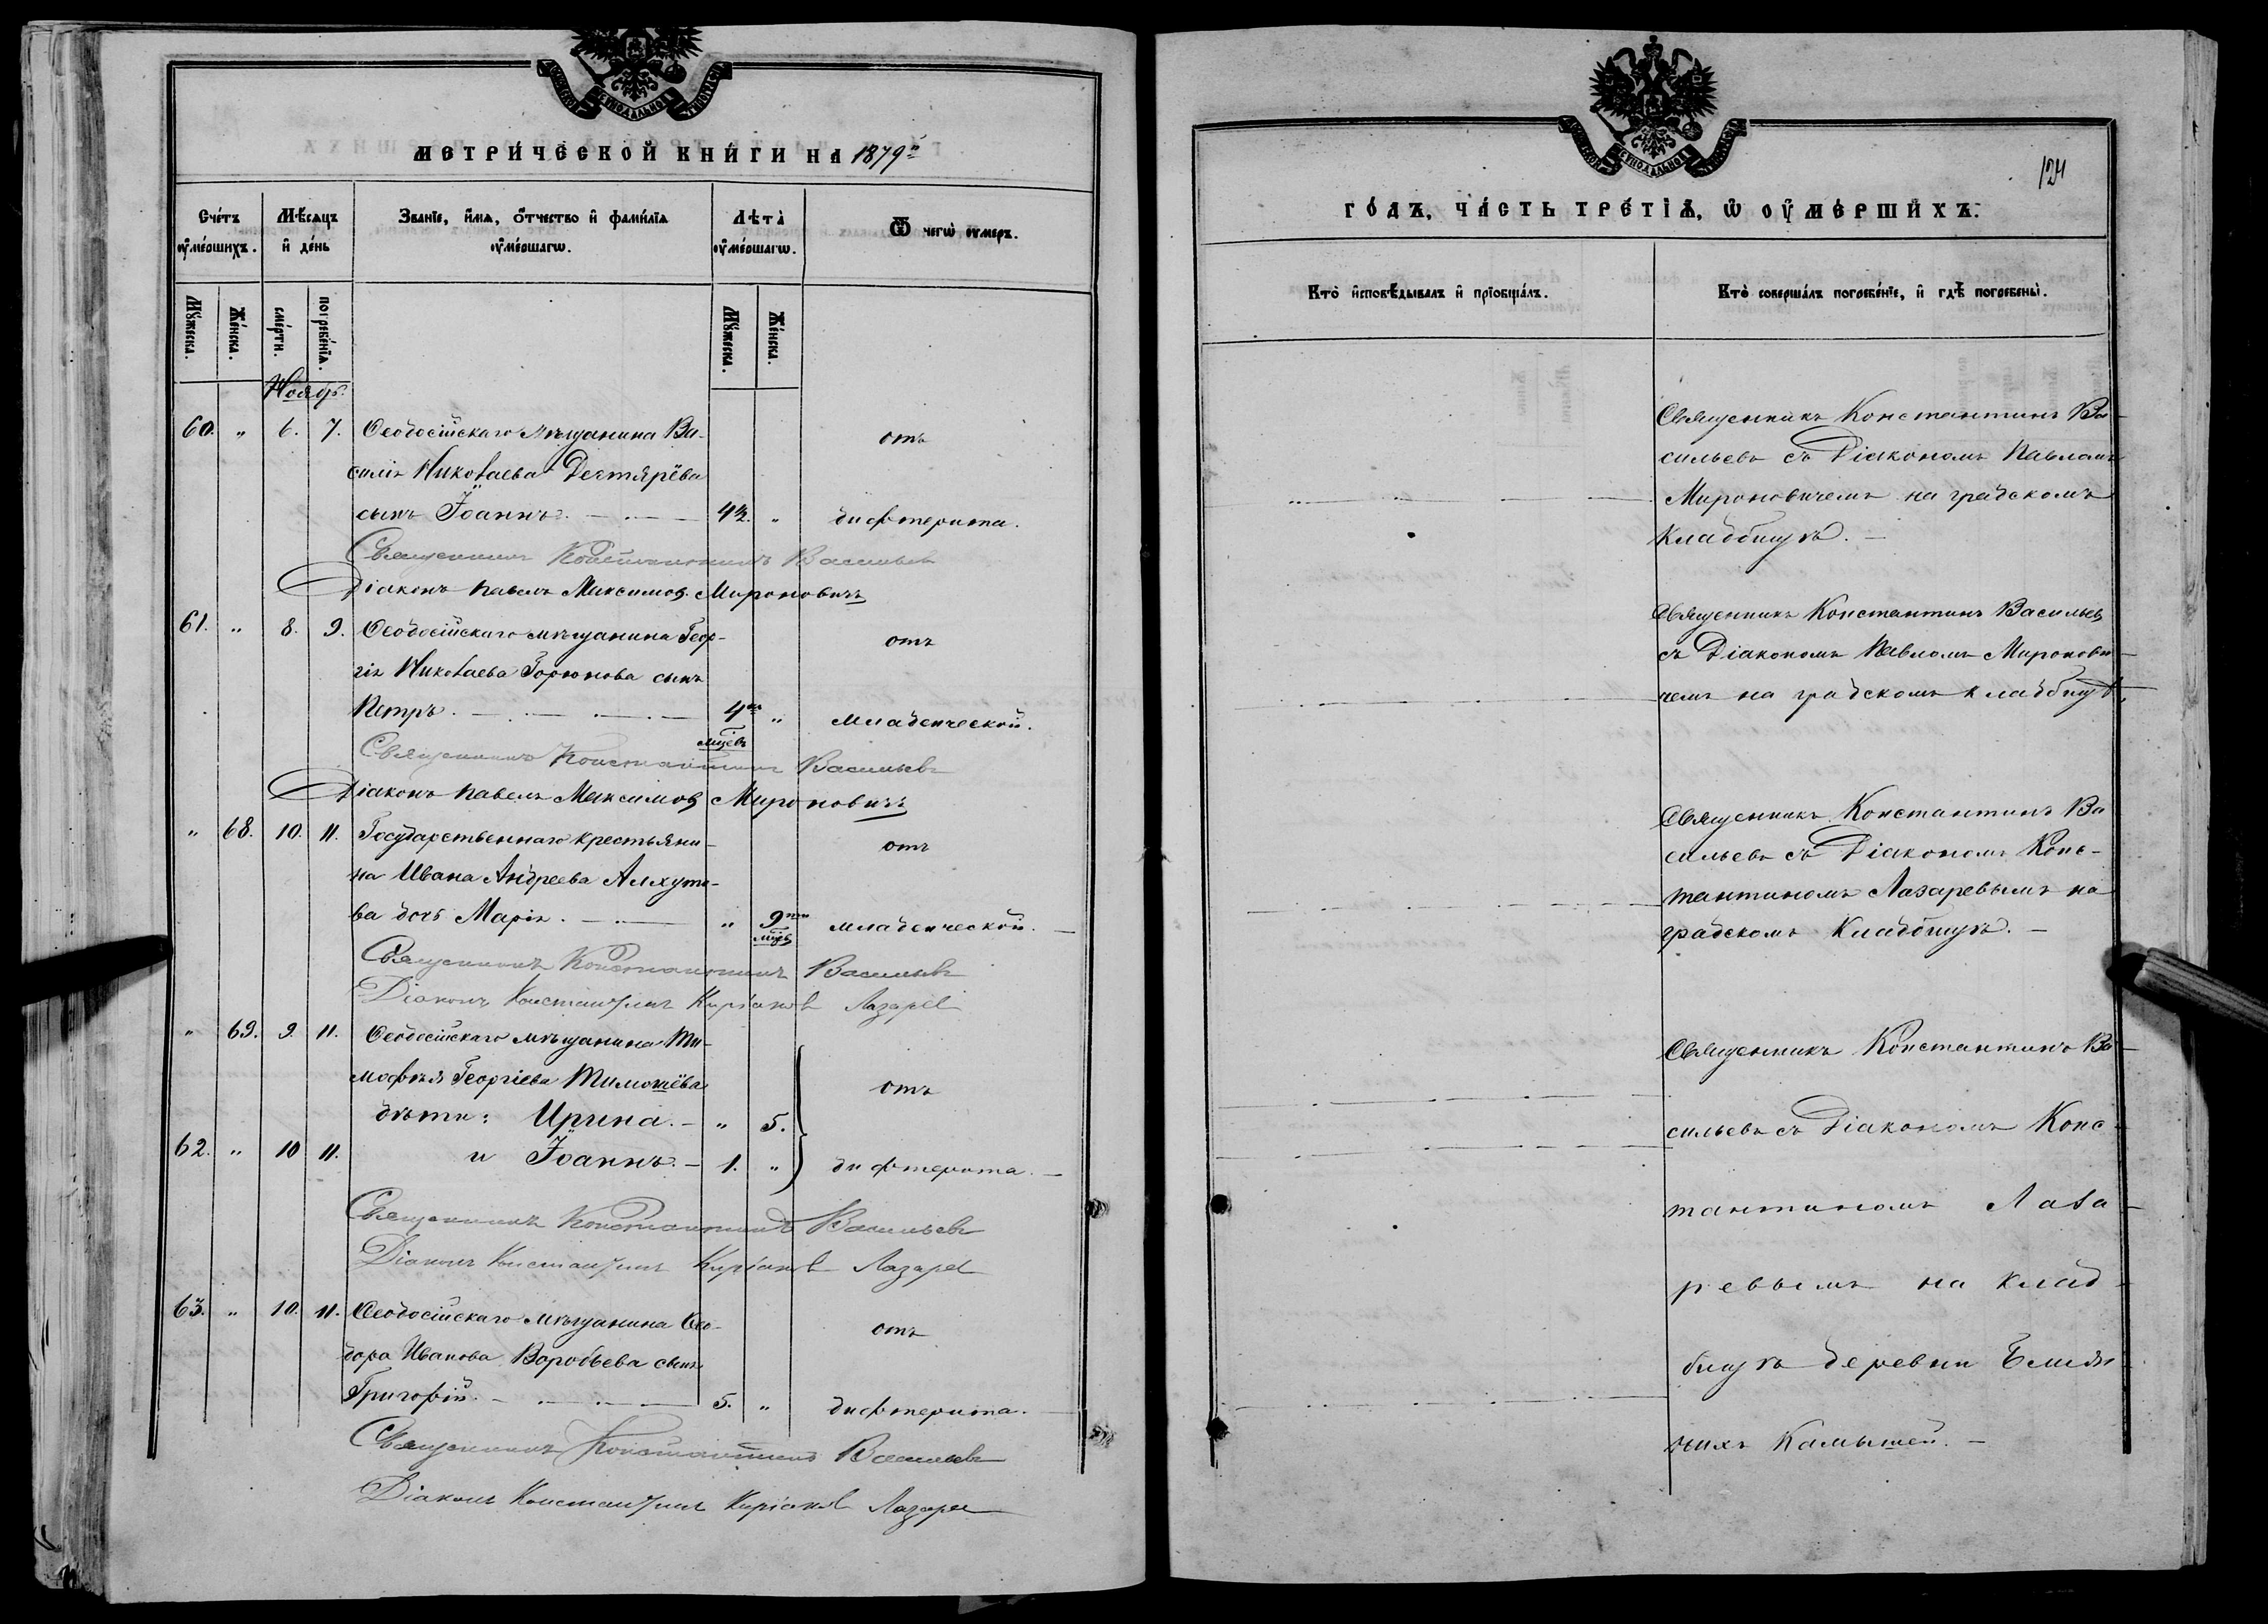 МЕТРИЧЕСКОЙ КНИГИ НА 1879й
Счетъ умершихъ.
Мѣсяцъ и день
Званіе, имя, отчество и фамилія умершагѡ.
Лѣта умершагѡ.
Ѿ чегѡ умеръ.
Мужеска.
Женска.
смерти.
погребенія.
Мужеска.
Женска.
Ноябрь.
60. " 6. 7. Ѳеодосійскаго мѣщанина Ва- отъ
силія Николаева Дегтярёва
сынъ Іоаннъ. " дифтерита.
Священникъ Константинъ Васильевъ
Діаконъ Павелъ Максимов. Мироновичъ
61. " 8. 9. Ѳеодосійскаго мѣщанина Геор- отъ
гія Николаева Горюнова сынъ
Петръ. 4хъ " младенческой.
мцевъ
Священникъ Константинъ Васильевъ
Діаконъ Павелъ Максимов Мироновичъ
" 68. 10. 11. Государственнаго крестьяни- отъ
на Ивана Андреева
ва дочь Марія. " 9ти младенческой.
мцвъ
Священникъ Константинъ Васильевъ
Діаконъ Константинъ Киріаков Лазарев
" 69. 9. 11. Ѳеодосійскаго мѣщанина Ти-
мофея Георгіева отъ
дѣти: Ирина. " 5.
62. " 10 11. и Іоаннъ. 1. " дифтерита.
Священникъ Константинъ Васильевъ
Діаконъ Константинъ Киріаков Лазарев
63. " 10. 11. Ѳеодосійскаго мѣщанина Ѳео- отъ
дора Иванова Воробьева сынъ
Григорій. 5. " дифтерита.
Священникъ Константинъ Васильевъ
Діаконъ Константинъ Киріаков Лазарев
124
ГОДЪ, ЧАСТЬ ТРЕТІЯ, Ѡ УМЕРШИХЪ.
Кто исповѣдывалъ и пріобщалъ.
Кто совершалъ погребеніе, и гдѣ погребены.
Священникъ Константинъ Ва-
сильевъ съ Діакономъ Павломъ
Мироновичемъ на градскомъ
кладбищѣ.
Священникъ Константинъ Васильев
съ Діакономъ Павломъ Миронови-
чемъ на градскомъ кладбищѣ,
Священникъ Константинъ Ва
сильевъ съ Діакономъ Конс-
тантиномъ Лазаревымъ на
градскомъ Кладбищѣ.
Священникъ Константинъ Ва-
сильевъ съ Діакономъ Конс-
тантиномъ Лаза-
ревымъ на клад-
бищѣ деревни
Камышей.